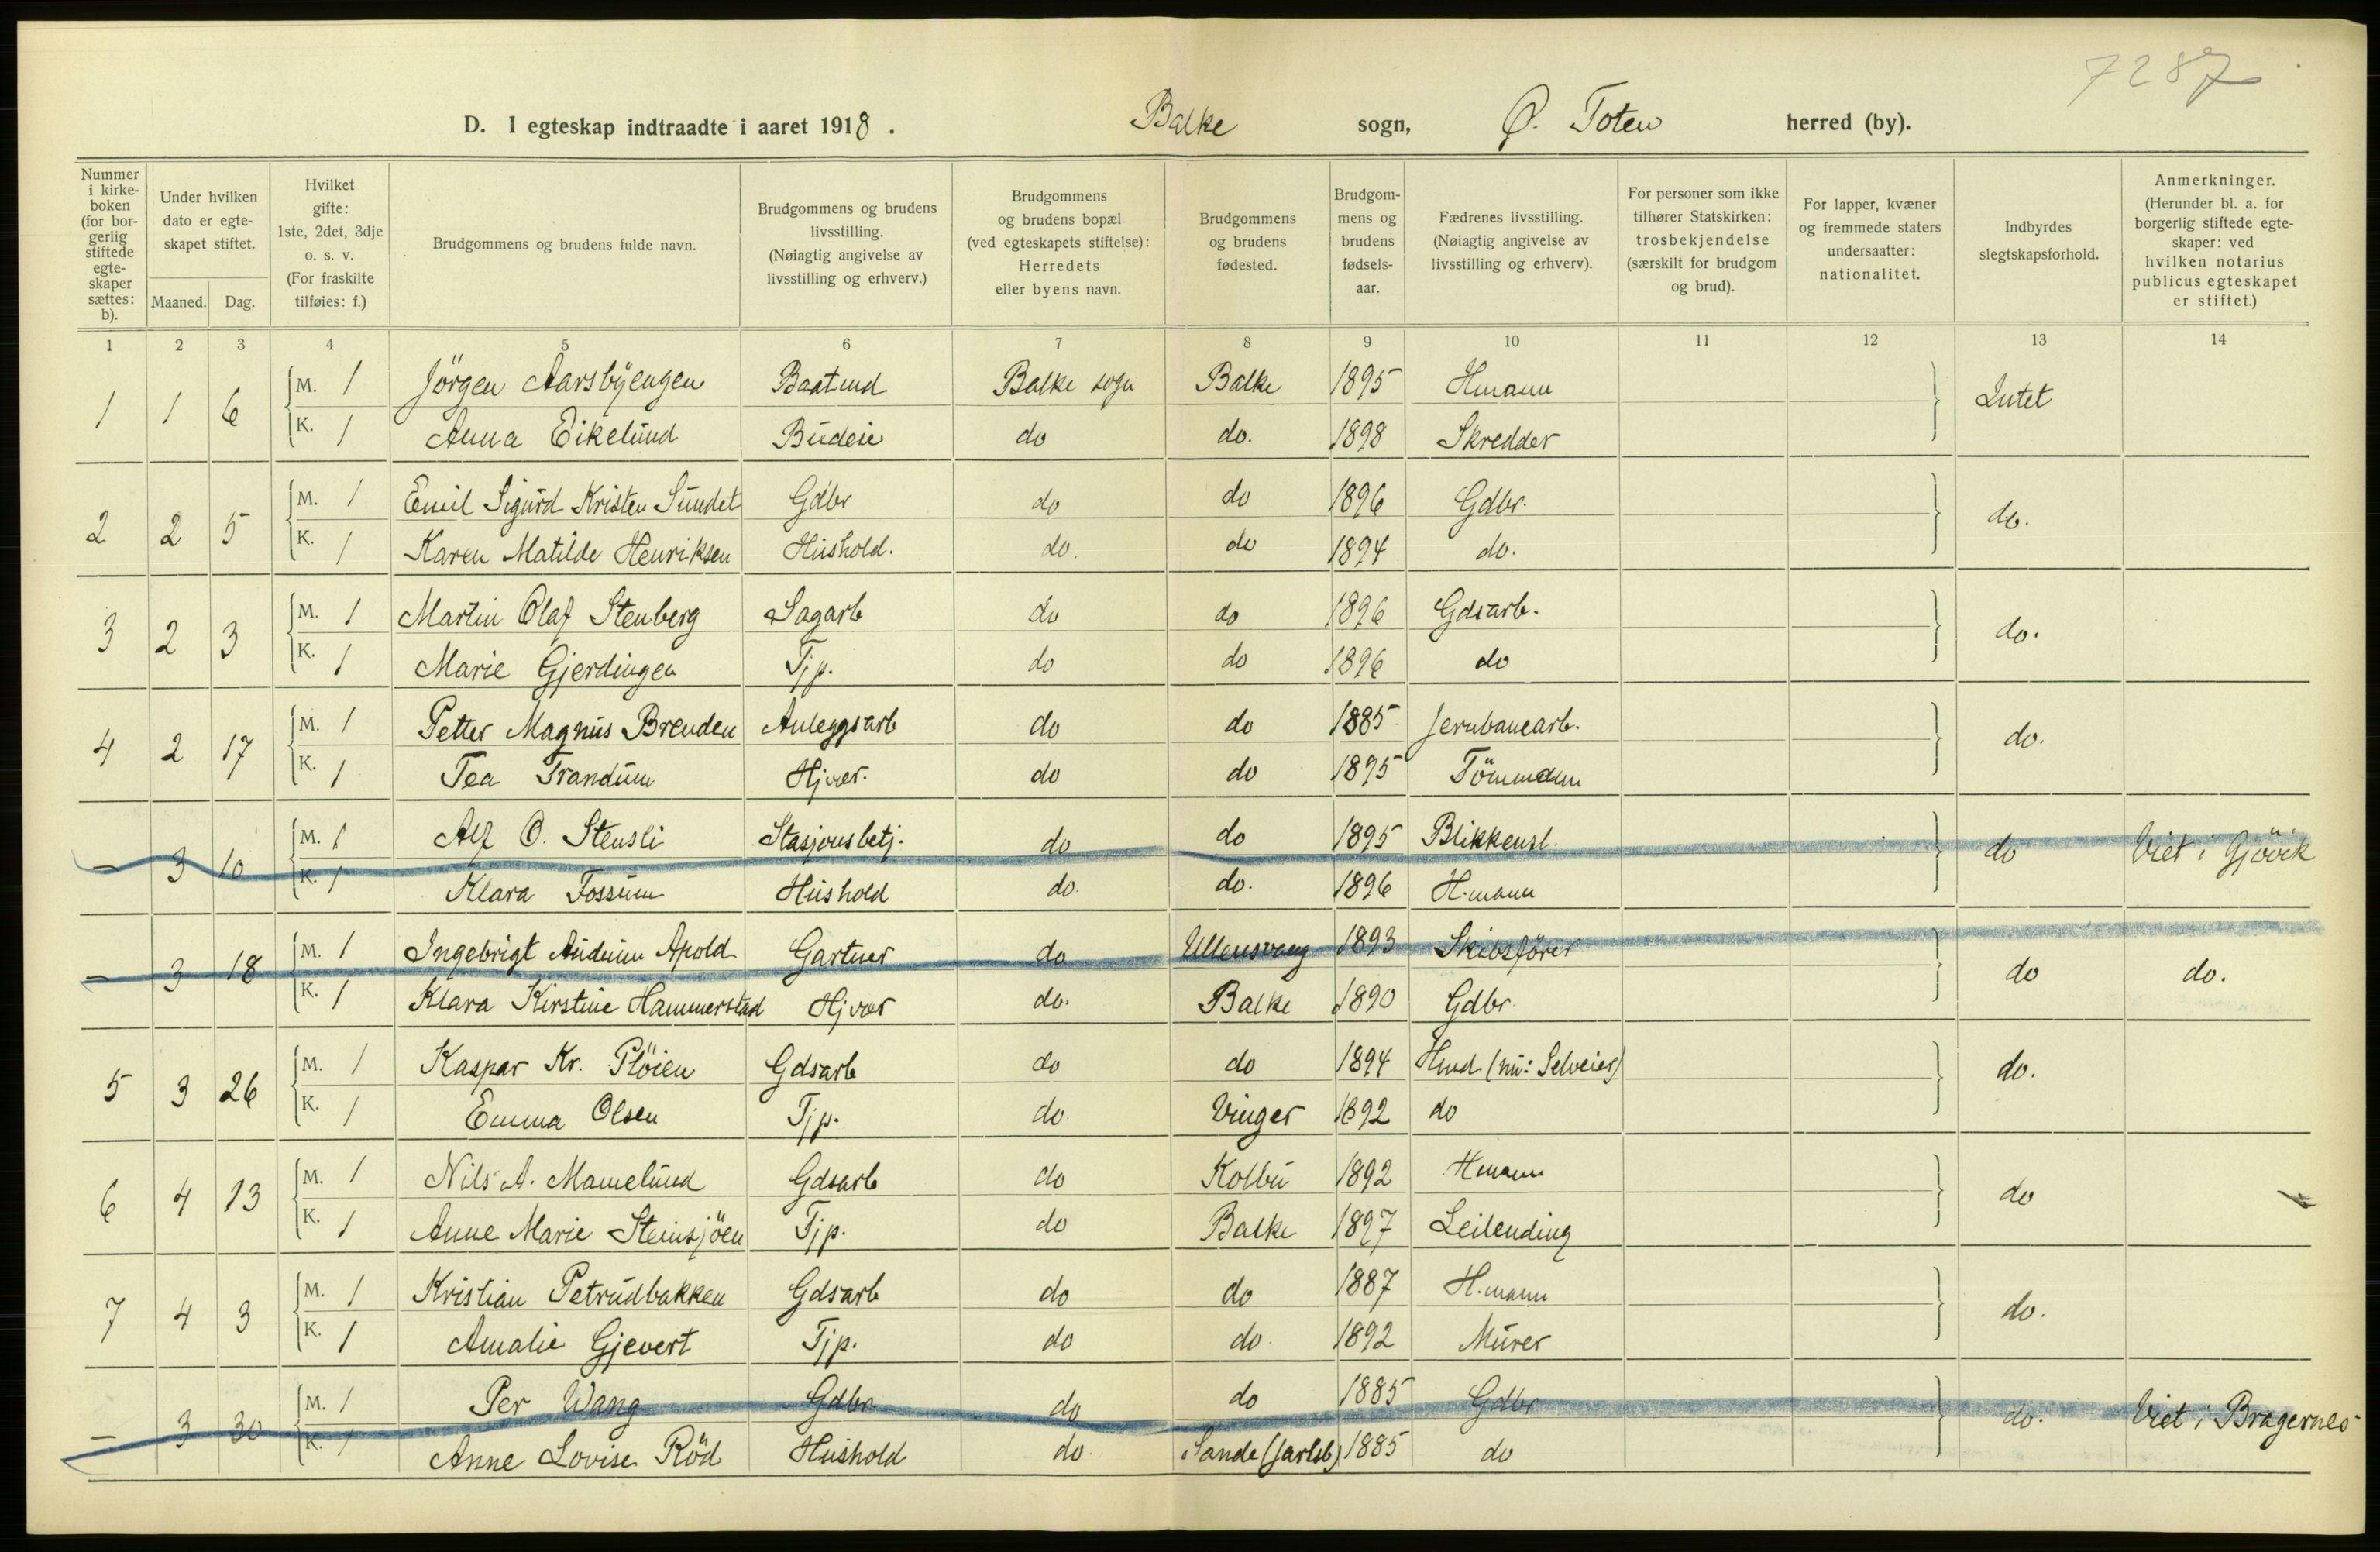 7287
D. I egteskap indtraadte i aaret 1918. Balke sogn, Ø. Toten herred (by).
Nummer i kirkeboken (for borgerlig stiftede egteskaper sættes: b). Under hvilken dato er egteskapet stiftet. Maaned. Dag. Hvilket gifte: 1ste, 2det, 3dje o. s. v. (For fraskilte tilføies: f.) Brudgommens og brudens fulde navn. Brudgommens og brudens livsstilling. (Nøiagtig angivelse av livsstilling og erhverv.) Brudgommens og brudens bopæl (ved egteskapets stiftelse): Herredets eller byens navn. Brudgommens og brudens fødested. Brudgommens og brudens fødselsaar. Fædrenes livsstilling. (Nøiagtig angivelse av livsstilling og erhverv). For personer som ikke tilhører Statskirken: trosbekjendelse (særskilt for brudgom og brud). For lapper, kvæner og fremmede staters undersaatter: nationalitet. Indbyrdes slegtskapsforhold. Anmerkninger. (Herunder bl. a. for borgerlig stiftede egteskaper: ved hvilken notarius publicus egteskapet er stiftet.)
1 2 3 4 5 6 7 8 9 10 11 12 13 14
1 1 6 M. 1 Jörgen Aarsbyengen Baatmd Balke sogn Balke 1895 Hmann Intet
K. 1 Anna Eikelund Budeie do do. 1898 Skredder
2 2 5 M. 1 Emil Sigurd Kristen Sundet Gdbr do do 1896 Gdbr. do.
K. 1 Karen Matilde Henriksen Hushold. do. do 1894 do.
3 2 3 M. 1 Martin Olaf Stenberg Sagarb do do 1896 Gdsarb. do.
K. 1 Marie Gjerdingen Tjp. do do 1896 do
4 2 17 M. 1 Petter Magnus Brenden Anleggsarb do do 1885 Jernbanearb. do.
K. 1 Tea Trandum Hjvær. do do 1895 Tömmerm
— 3 10 M. 1 Alf O. Stensli Stasjonsbetj. do do 1895 Blikkensl. do Viet i Gjövik
K. 1 Klara Fossum Hushold do. do. 1896 H.mann
— 3 18 M. 1 Ingebrigt Audunn Apold Gartner do Ullensvang 1893 Skibsförer do do.
K. 1 Klara Kirstine Hammerstad Hjvær do. Balke 1890 Gdbr.
5 3 26 M. 1 Kaspar Kr. Plöien Gdsarb do do 1894 Hmd (nu: Selveier) do.
K. 1 Emma Olsen Tjp. do Vinger 1892 do
6 4 13 M. 1 Nils A. Mamelund Gdsarb do Kolbu 1892 Hmann do
K. 1 Anne Marie Steinsjöen Tjp. do Balke 1897 Leilending
7 4 3 M. 1 Kristian Petrudbakken Gdsarb do do 1887 H.mann do.
K. 1 Amalie Gjevert Tjp. do do 1892 Murer
— 3 30 M. 1 Per Wang Gdbr. do do 1885 Gdbr do. Viet i Bragernes
K. 1 Anne Lovise Röd Hushold do. Sande (Jarlsb) 1885 do